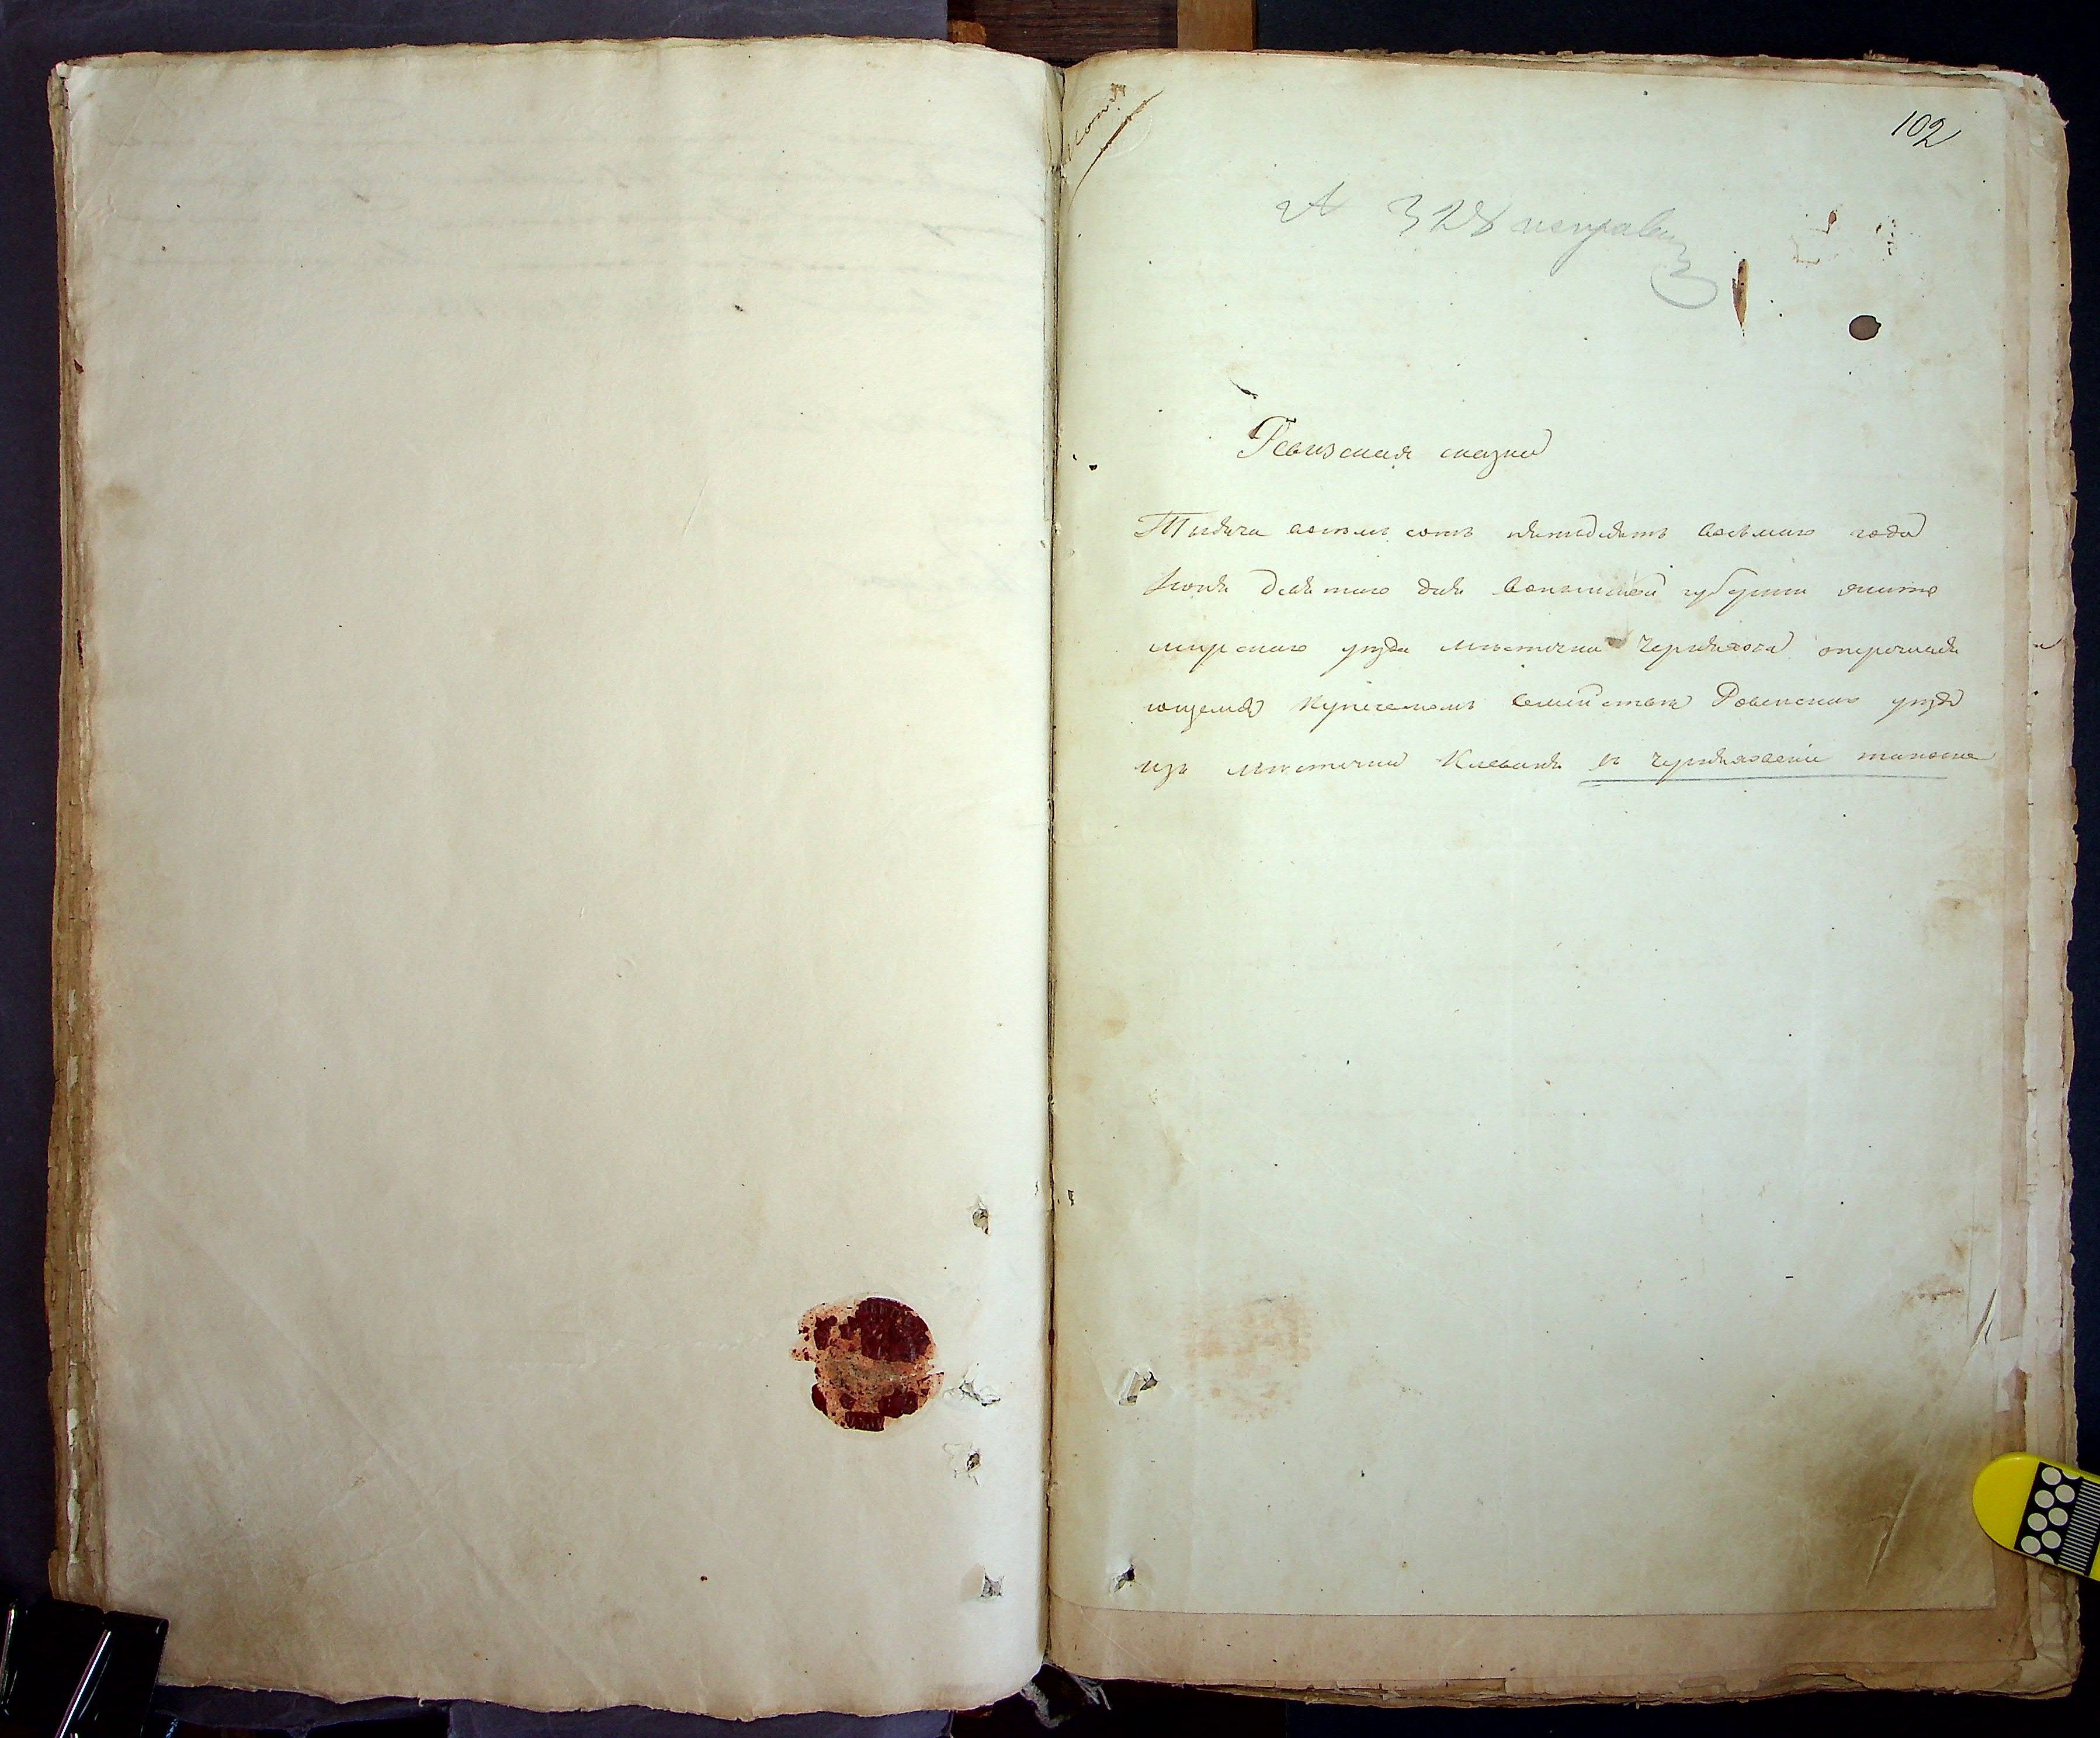 102
№ 328 исправен
Ревизская сказка
Тысяча восемь сотъ пятидесятъ восьмаго года
Іюня девятаго дня Волынской губерніи Жито
мирскаго уезда местечка Черняхова о перечисля
ющемся купеческомъ семействе Ровенскаго уезда
изъ местечка Клеваня въ Черняховскіе таковые